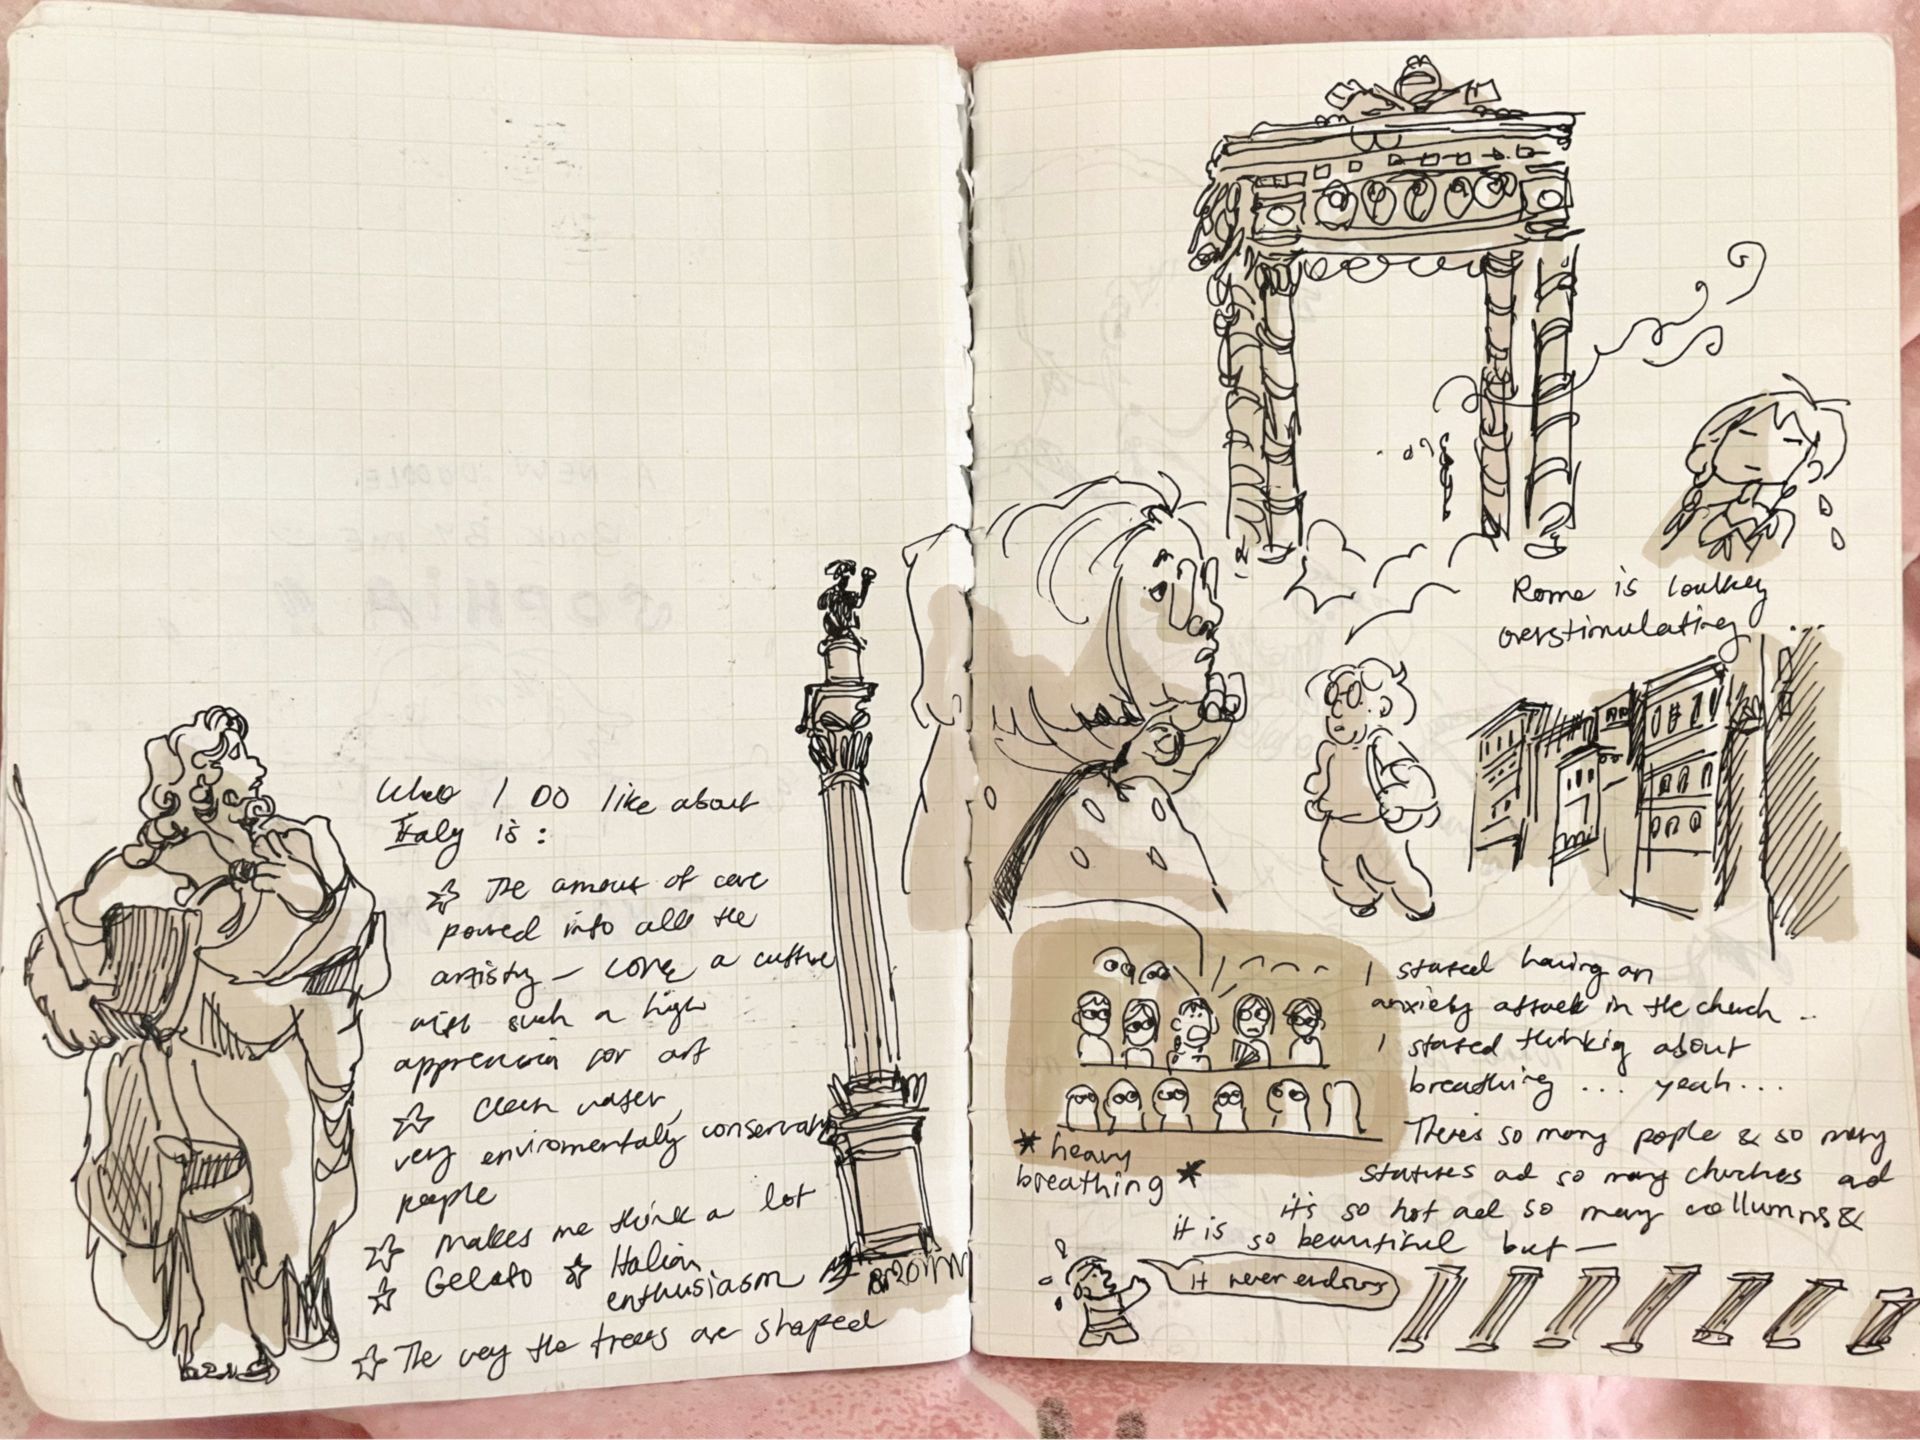 What I DO like about
Italy is:
☆ The amout of care
poured into all the
artistry — Love a culture
with such a high
apprenciation for art
☆ Clean water,
very enviromentaly conservative
people
☆ makes me think a lot
☆ Gelato ☆ Italian
enthusiasm
☆ The way the trees are shaped
Rome is lowkey
overstimulating ...
I started having an
anxiety attack in the church ..
I started thinking about
breathing ... yeah...
* heavy
breathing *
Theres so many people & so many
statues ad so many churches ad
it's so hot ad so many collumns &
it is so beautiful but —
it never endsss